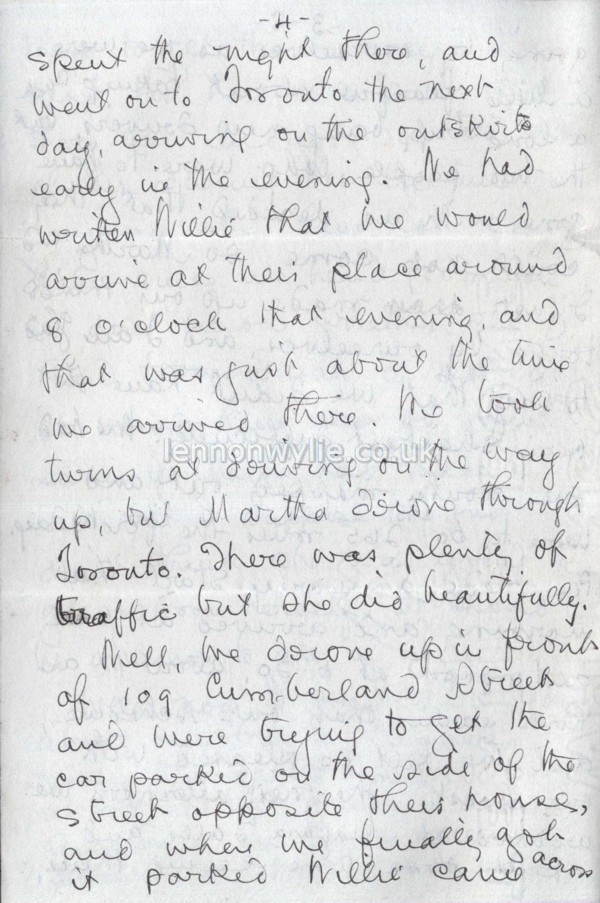 -4-
spent the night there, and
went on to Toronto the next
day, arriving on the outskirts
early in the evening. We had
written Willie that we would
arrive at their place around
8 o'clock that evening, and
that was just about the time
we arrived there. We took
lennonwylie.co.uk
turns at driving on the way
up, but Martha drove through
Toronto. There was plenty of
traffic but she did beautifully.
Well, we drove up in front
of 109 Cumberland Street
and were trying to get the
car parked on the side of the
street opposite their house,
and when we finally got
it parked Willie came across